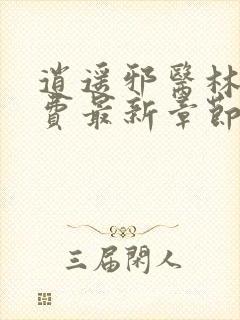 逍遥邪醫林
費最新章節
三届閑人